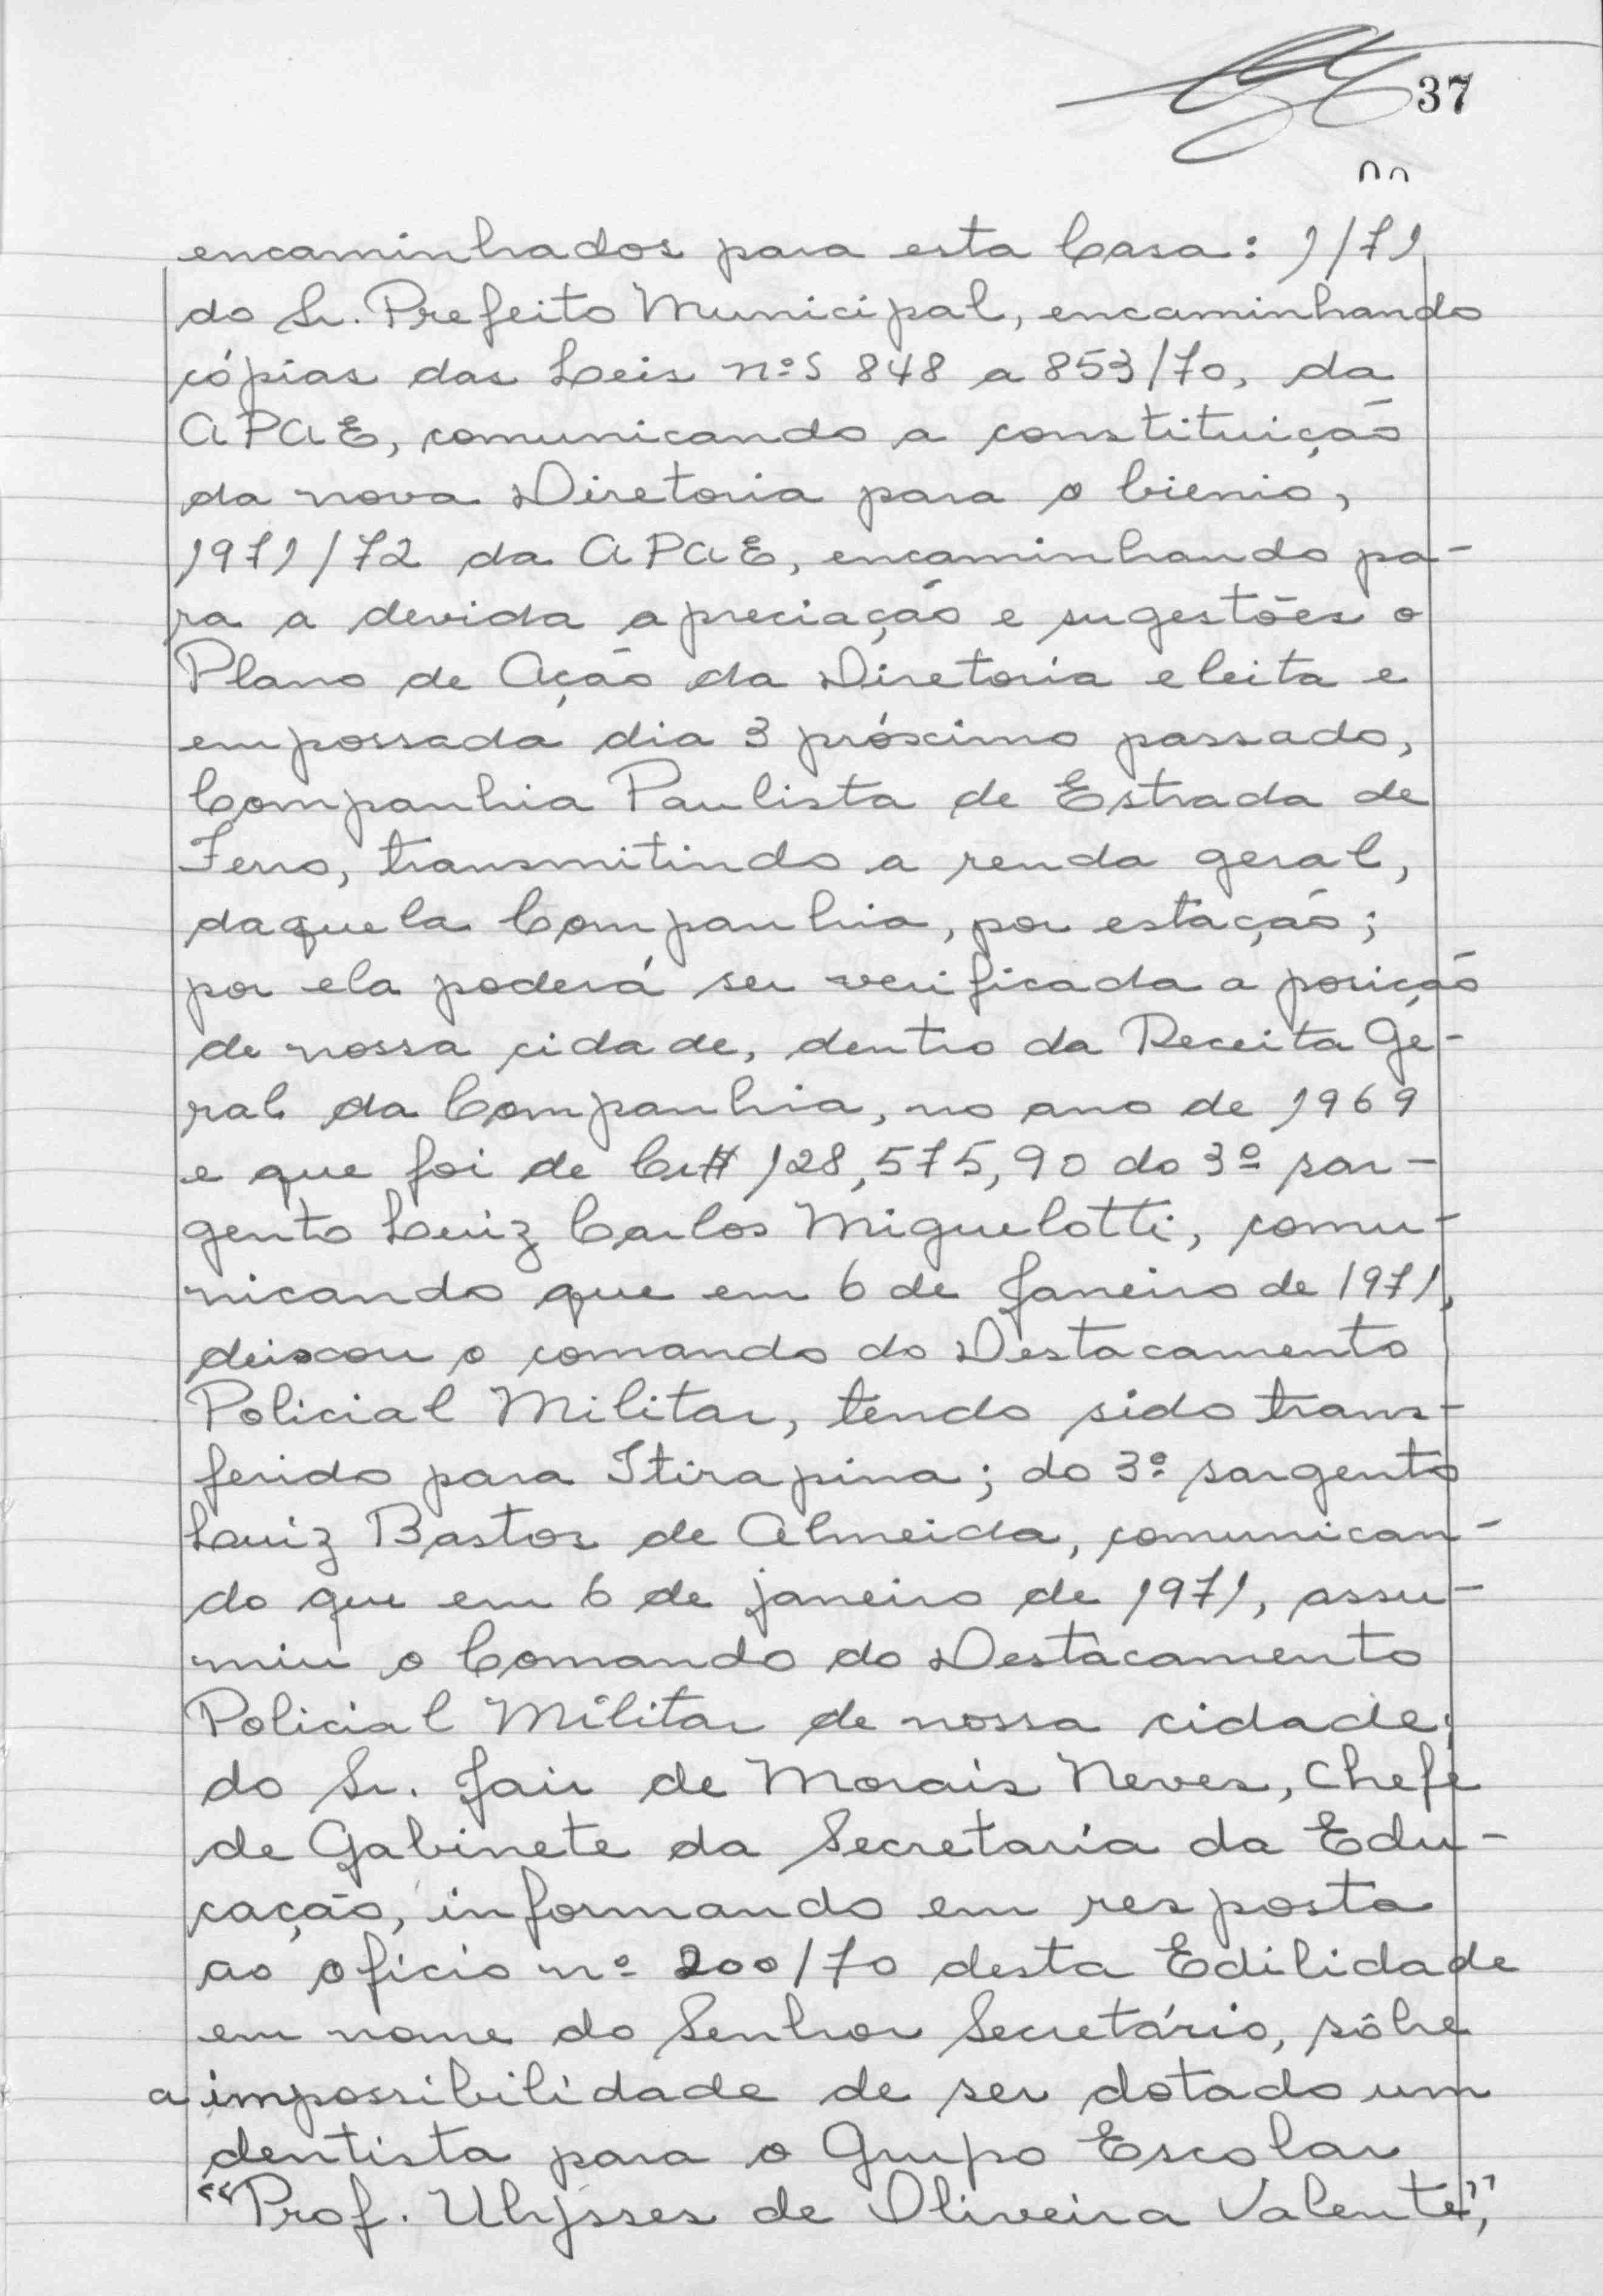 37
encaminhados para esta Casa: 1/71
do Sr. Prefeito Municipal, encaminhando
cópias das Leis nºs 848 a 853/70, da
APAE, comunicando a constituição
da nova Diretoria para o bienio,
1971/72 da APAE, encaminhando pa-
ra a devida apreciação e sugestões o
Plano de Ação da Diretoria eleita e
empossada dia 3 próximo passado,
Companhia Paulista de Estrada de
Ferro, transmitindo a renda geral,
daquela Companhia, por estação;
por ela poderá ser verificada a posição
de nossa cidade, dentro da Receita Ge-
ral da Companhia, no ano de 1969
e que foi de Cr$ 128,575,90 do 3º sar-
gento Luiz Carlos Miguelotti, comu-
nicando que em 6 de Janeiro de 1971,
deixou o comando do Destacamento
Policial Militar, tendo sido trans-
ferido para Itirapina; do 3º sargento
Luiz Bastos de Almeida, comunican-
do que em 6 de janeiro de 1971, assu-
miu o Comando do Destacamento
Policial Militar de nossa cidade;
do Sr. Jair de Morais Neves, Chefe
de Gabinete da Secretaria da Edu-
cação, informando em resposta
ao oficio nº 200/70 desta Edilidade
em nome do Senhor Secretário, sôbre
a impossibilidade de ser dotado um
dentista para o Grupo Escolar
"Prof. Ulysses de Oliveira Valente",